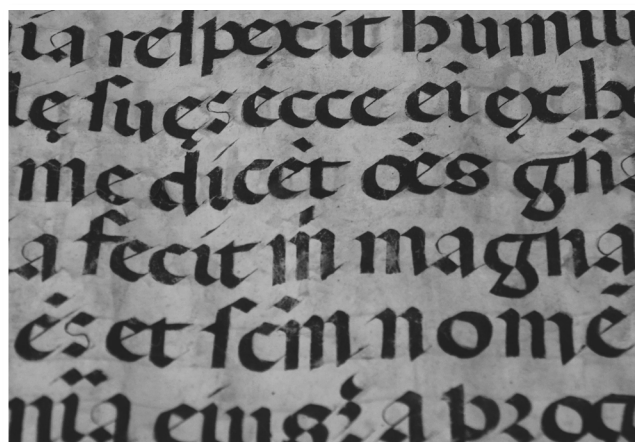 ia respexit humili
lę suę: ecce ei ex ho
me dicēt oēs gn̄s
a fecit m̄ magna
ēs et scm̄ nomē
nīa eius: A prog